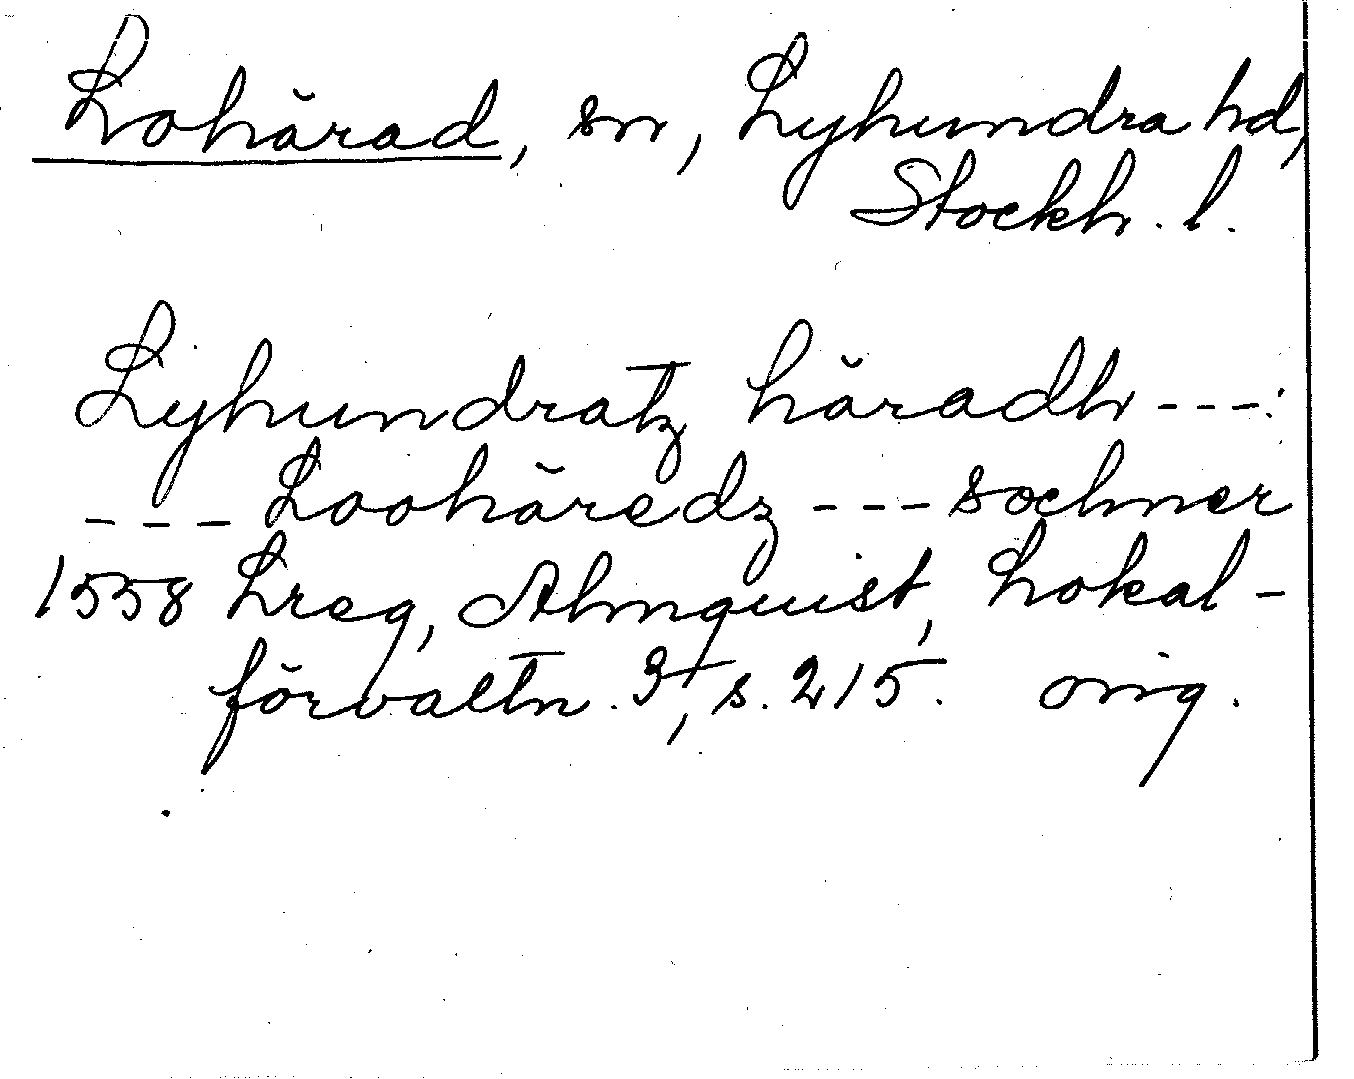 Lohärad, sn, Lyhundra hd,
Stockh. l.
Lyhundratz häradh ---:
--- Loohäredz --- sochner
1558 Lreg, Almquist, Lokal-
förvaltn. 3, s. 215. orig.